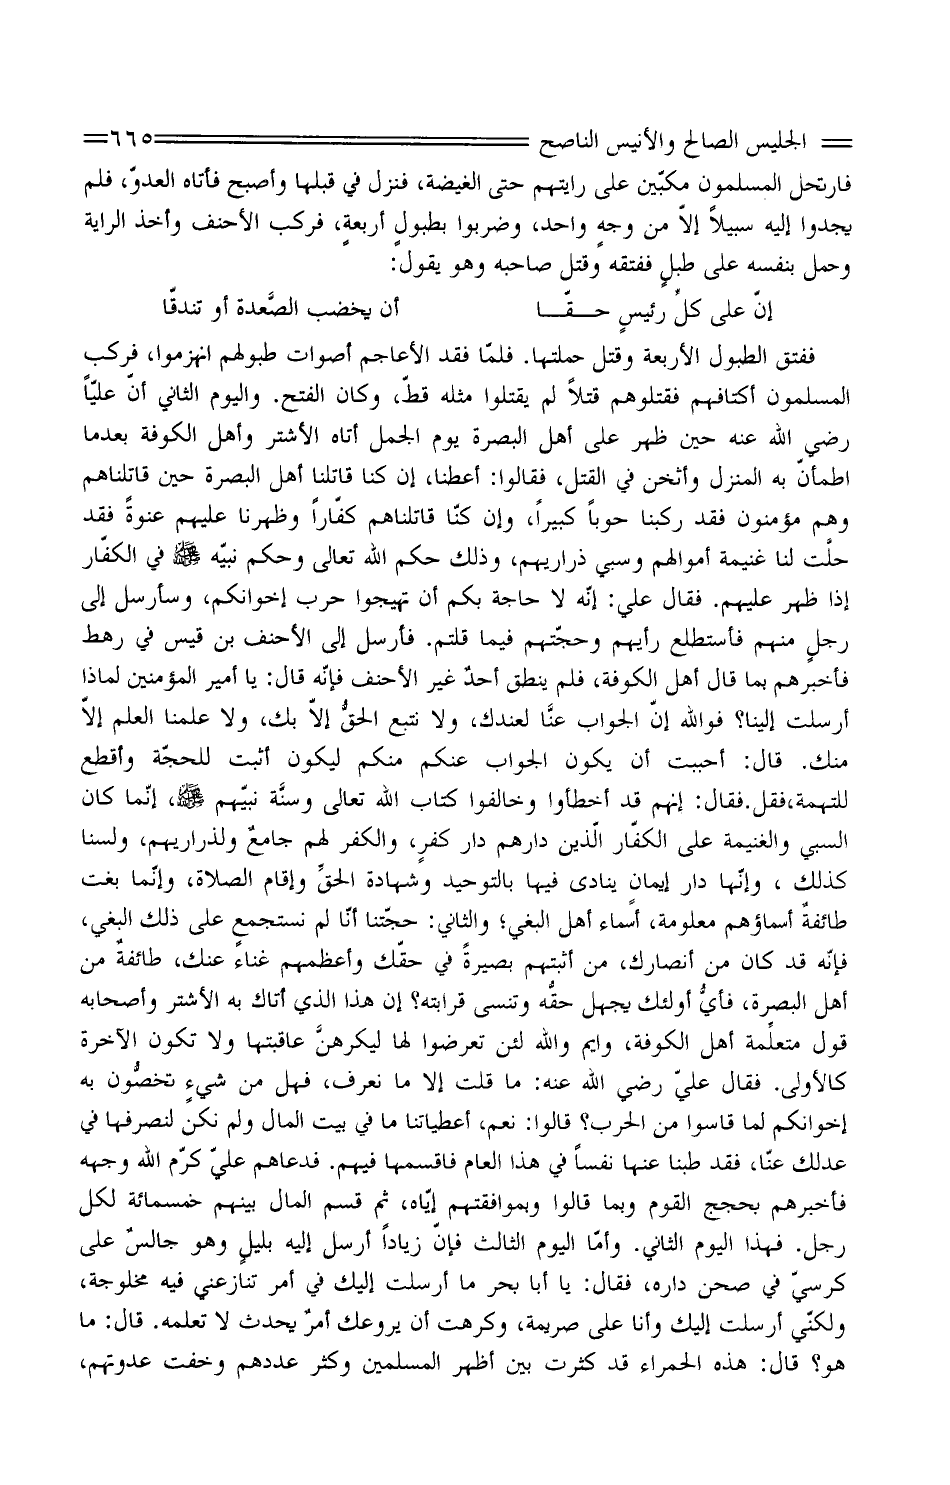 الجليس الصالح والأنيس الناصح ٦٦٥
فارتحل المسلمون مكبّين على رايتهم حتى الغيضة، فنزل في قبلها وأصبح فأتاه العدوّ، فلم
يجدوا إليه سبيلاً إلاّ من وجهٍ واحد، وضربوا بطبولٍ أربعةٍ، فركب الأحنف وأخذ الراية
وحمل بنفسه على طبلٍ ففتقه وقتل صاحبه وهو يقول:
إنّ على كلِّ رئيسٍ حـــقّـــا أن يخضب الصَّعدة أو تندقّا
ففتق الطبول الأربعة وقتل حملتها. فلمّا فقد الأعاجم أصوات طبولهم انهزموا، فركب
المسلمون أكتافهم فقتلوهم قتلاً لم يقتلوا مثله قطّ، وكان الفتح. واليوم الثاني أنّ عليّاً
رضي الله عنه حين ظهر على أهل البصرة يوم الجمل أتاه الأشتر وأهل الكوفة بعدما
اطمأنّ به المنزل وأثخن في القتل، فقالوا: أعطنا، إن كنا قاتلنا أهل البصرة حين قاتلناهم
وهم مؤمنون فقد ركبنا حوباً كبيراً، وإن كنّا قاتلناهم كفّاراً وظهرنا عليهم عنوةً فقد
حلَّت لنا غنيمة أموالهم وسبي ذراريهم، وذلك حكم الله تعالى وحكم نبيّه ﷺ في الكفّار
إذا ظهر عليهم. فقال علي: إنّه لا حاجة بكم أن تهيجوا حرب إخوانكم، وسأرسل إلى
رجلٍ منهم فأستطلع رأيهم وحجّتهم فيما قلتم. فأرسل إلى الأحنف بن قيس في رهط
فأخبرهم بما قال أهل الكوفة، فلم ينطق أحدٌ غير الأحنف فإنّه قال: يا أمير المؤمنين لماذا
أرسلت إلينا؟ فوالله إنّ الجواب عنَّا لعندك، ولا نتبع الحقُّ إلاّ بك، ولا علمنا العلم إلاّ
منك. قال: أحببت أن يكون الجواب عنكم منكم ليكون أثبت للحجّة وأقطع
للتهمة،فقل.فقال: إنهم قد أخطأوا وخالفوا كتاب الله تعالى وسنَّة نبيّهم ﷺ، إنّما كان
السبي والغنيمة على الكفّار الّذين دارهم دار كفرٍ، والكفر لهم جامعٌ ولذراريهم، ولسنا
كذلك ، وإنّها دار إيمانٍ ينادى فيها بالتوحيد وشهادة الحقِّ وإقام الصلاة، وإنّما بغت
طائفةٌ أسماؤهم معلومة، أسماء أهل البغي؛ والثاني: حجّتنا أنّا لم نستجمع على ذلك البغي،
فإنّه قد كان من أنصارك، من أثبتهم بصيرةً في حقّك وأعظمهم غناءً عنك، طائفةٌ من
أهل البصرة، فأيُّ أولئك يجهل حقُّه وتنسى قرابته؟ إن هذا الذي أتاك به الأشتر وأصحابه
قول متعلِّمة أهل الكوفة، وايم والله لئن تعرضوا لها ليكرهنَّ عاقبتها ولا تكون الآخرة
كالأولى. فقال عليّ رضي الله عنه: ما قلت إلا ما نعرف، فهل من شيءٍ تخصُّون به
إخوانكم لما قاسوا من الحرب؟ قالوا: نعم، أعطياتنا ما في بيت المال ولم نكن لنصرفها في
عدلك عنّا، فقد طبنا عنها نفساً في هذا العام فاقسمها فيهم. فدعاهم عليّ كرّم الله وجهه
فأخبرهم بحجج القوم وبما قالوا وبموافقتهم إيّاه، ثم قسم المال بينهم خمسمائة لكل
رجل. فهذا اليوم الثاني. وأمّا اليوم الثالث فإنّ زياداً أرسل إليه بليلٍ وهو جالسٌ على
كرسيّ في صحن داره، فقال: يا أبا بحر ما أرسلت إليك في أمر تنازعني فيه مخلوجة،
ولكنّي أرسلت إليك وأنا على صريمة، وكرهت أن يروعك أمرٌ يحدث لا تعلمه. قال: ما
هو؟ قال: هذه الحمراء قد كثرت بين أظهر المسلمين وكثر عددهم وخفت عدوتهم،